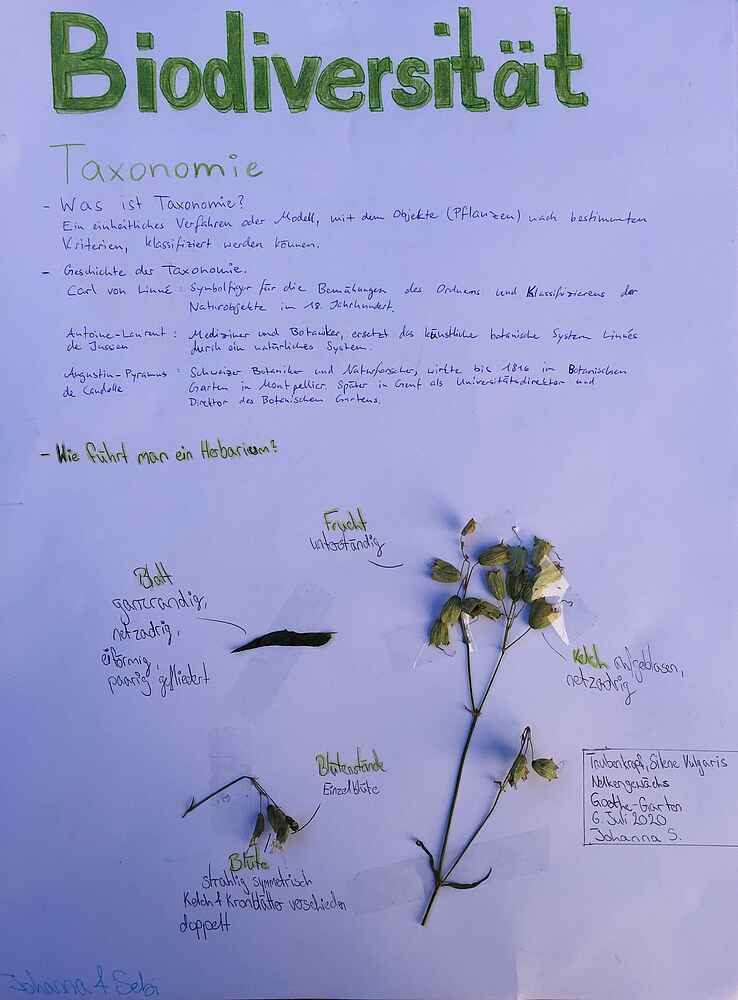 Biodiversität
Taxonomie
- Was ist Taxonomie?
Ein einheitliches Verfahren oder Modell, mit dem Objekte (Pflanzen) nach bestimmten
Kriterien, klassifiziert werden können.
- Geschichte der Taxonomie.
Carl von Linné : Symbolfigur für die Bemühungen des Ordnens und Klassifizierens der
Naturobjekte im 18. Jahrhundert.
Antoine-Laurent : Mediziner und Botaniker, ersetzt das künstliche botanische System Linnés
de Jussen durch ein natürliches System.
Augustin-Pyramus : Schweizer Botaniker und Naturforscher, wirkte bis 1816 im Botanischen
de Candolle Garten in Montpellier. Später in Genf als Universitätsdirektor und
Direktor des Botanischen Gartens.
- Wie führt man ein Herbarium?
Frucht
unterständig
Blatt
ganzrandig,
netzadrig,
eiförmig,
paarig gefliedert
Kelch aufgeblasen,
netzadrig
Blütenstände
Einzelblüte
Blüte
strahlig symmetrisch
Kelch & Kronblätter verschieden
doppelt
Traubenkropf, Silene Vulgaris
Nelkengewächs
Goethe-Garten
6. Juli 2020
Johanna S.
Johanna & Sebi